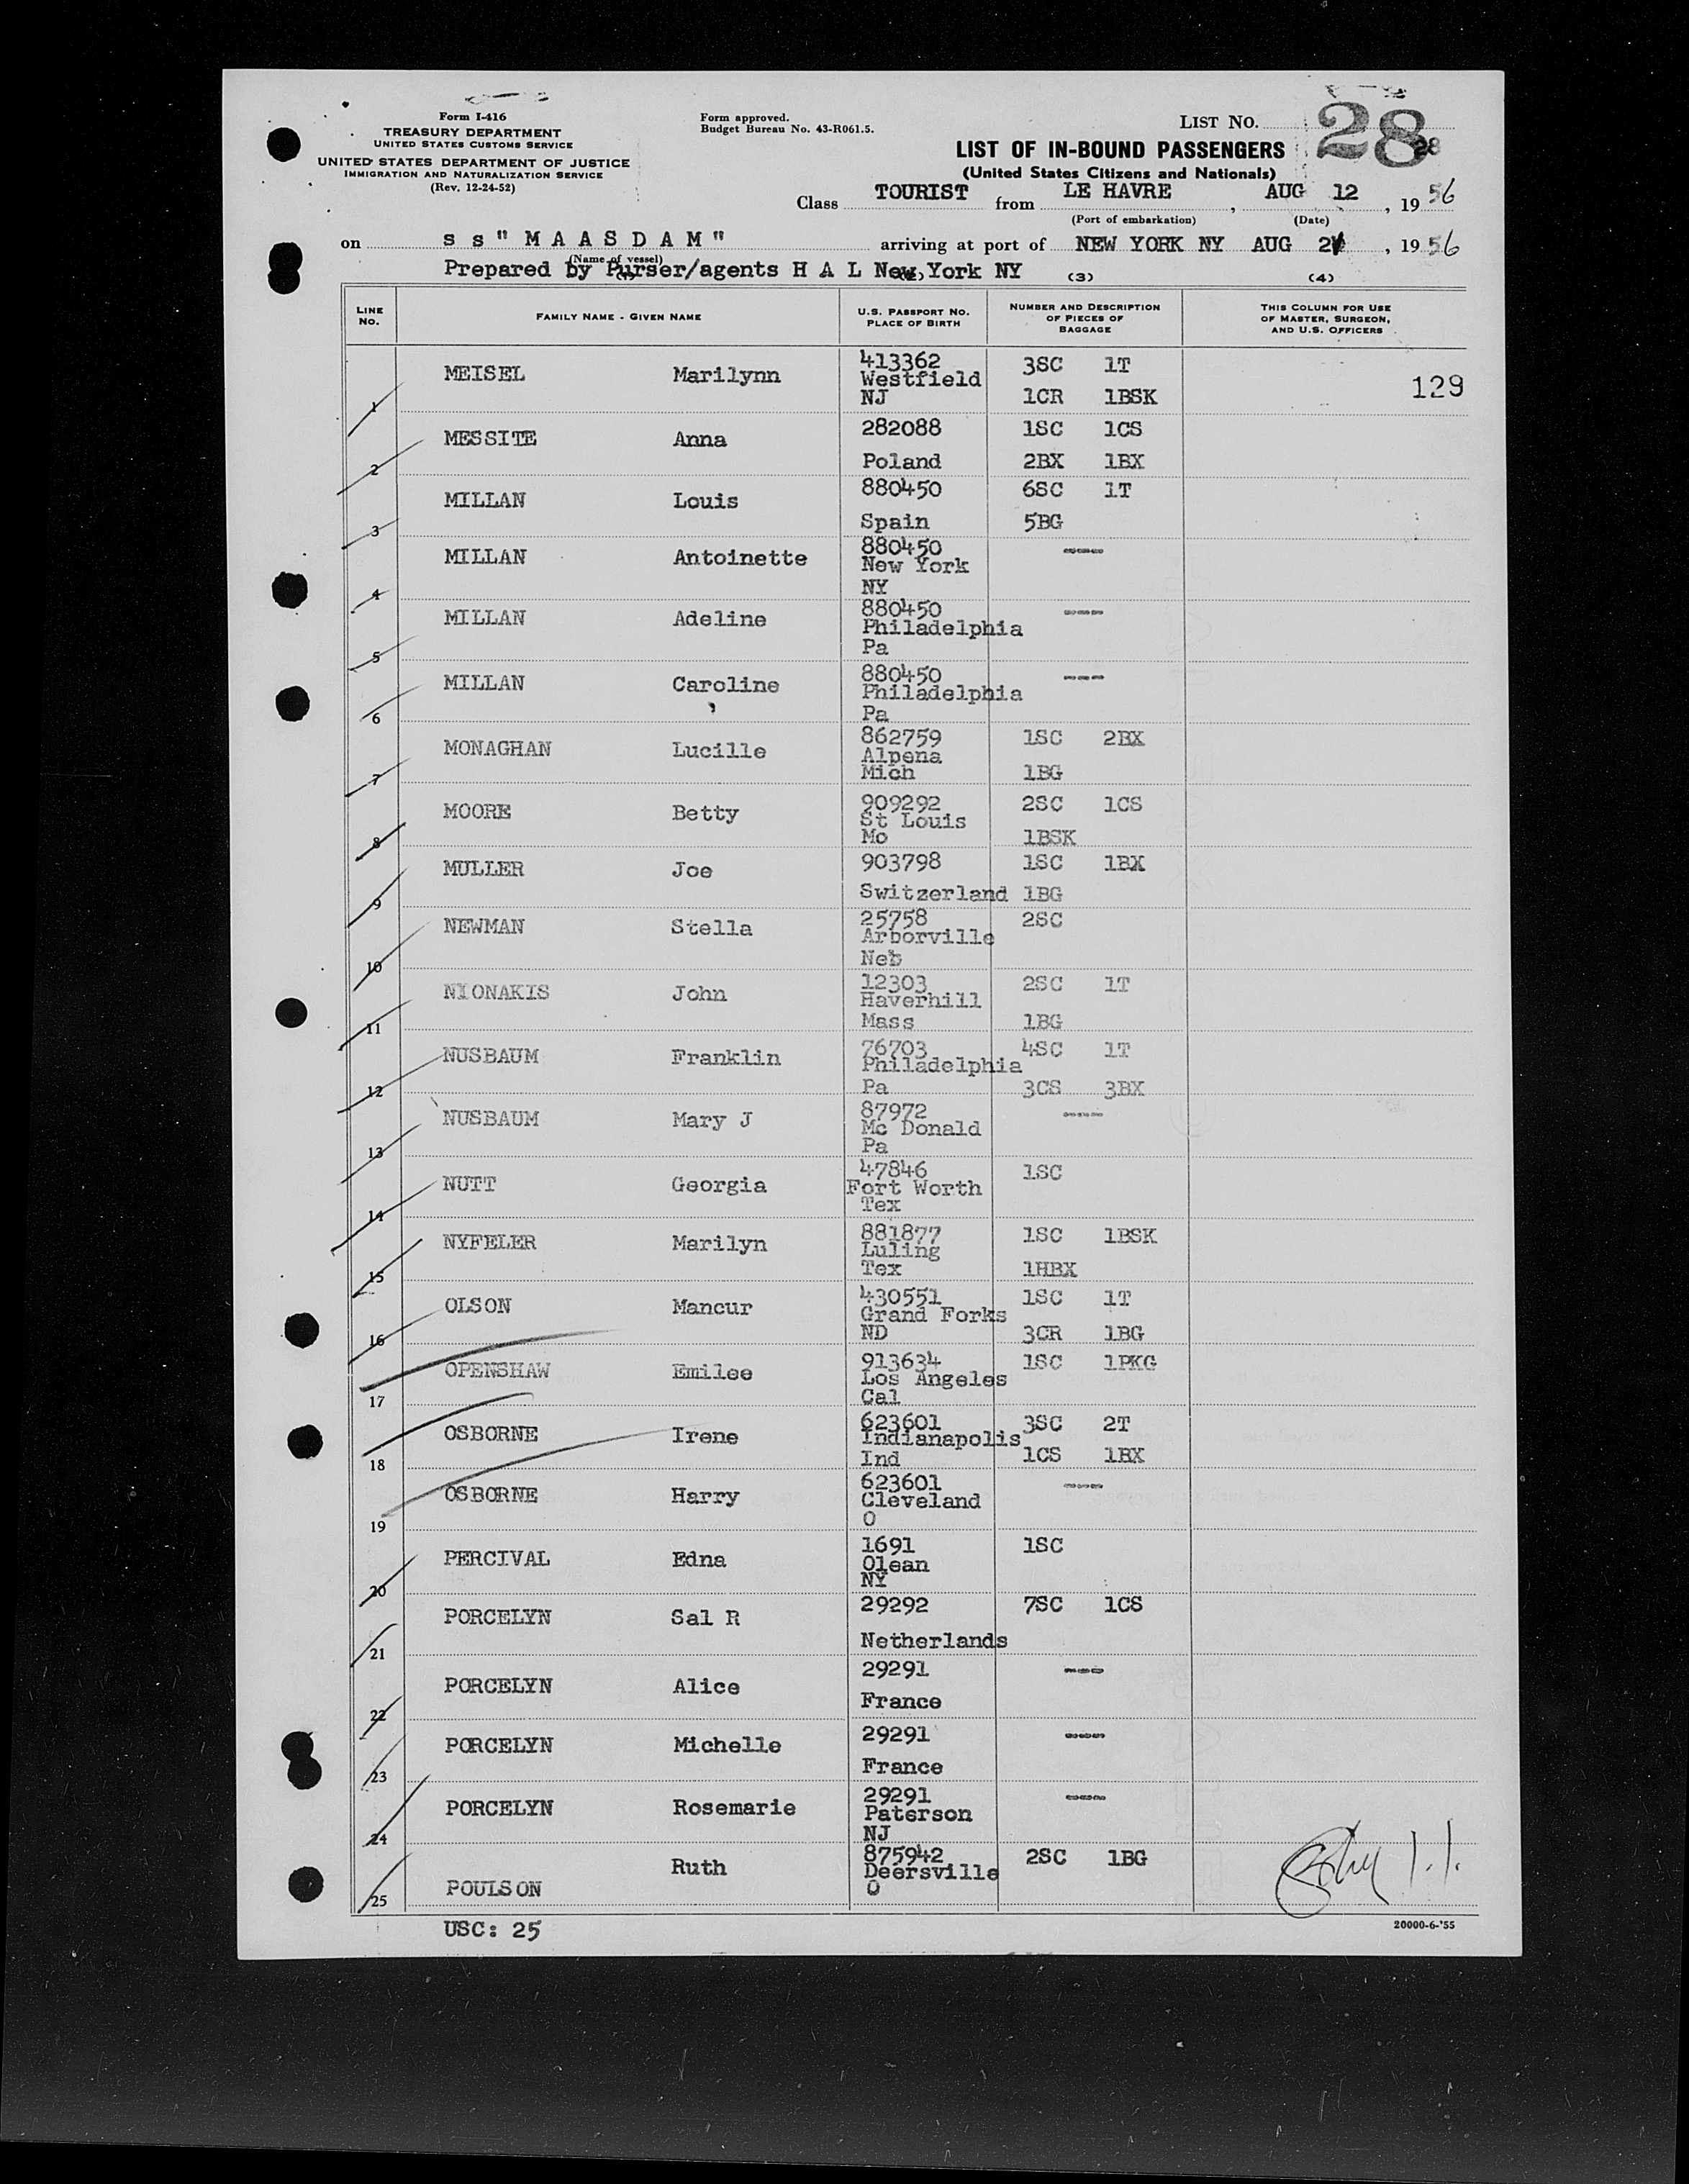 Form I-416
TREASURY DEPARTMENT
UNITED STATES CUSTOMS SERVICE
UNITED STATES DEPARTMENT OF JUSTICE
IMMIGRATION AND NATURALIZATION SERVICE
(Rev. 12-24-52)
Form approved.
Budget Bureau No. 43-R061.5.
LIST NO. 28
28
LIST OF IN-BOUND PASSENGERS
(United States Citizens and Nationals)
Class TOURIST from LE HAVRE, AUG 12, 1956
(Port of embarkation) (Date)
on s s " M A A S D A M " arriving at port of NEW YORK NY AUG 2, 1956
(Name of vessel)
Prepared by Purser/agents H A L New York NY (3) (4)
LINE No. FAMILY NAME - GIVEN NAME U.S. PASSPORT NO. PLACE OF BIRTH NUMBER AND DESCRIPTION OF PIECES OF BAGGAGE THIS COLUMN FOR USE OF MASTER, SURGEON, AND U.S. OFFICERS
129
1 MEISEL Marilynn 413362 Westfield NJ 3SC 1T 1CR 1BSK
2 MESSITE Anna 282088 Poland 1SC 1CS 2BX 1BX
3 MILLAN Louis 880450 Spain 6SC 1T 5BG
4 MILLAN Antoinette 880450 New York NY ----
5 MILLAN Adeline 880450 Philadelphia Pa ----
6 MILLAN Caroline 880450 Philadelphia Pa ----
7 MONAGHAN Lucille 862759 Alpena Mich 1SC 2BX 1BG
8 MOORE Betty 909292 St Louis Mo 2SC 1CS 1BSK
9 MULLER Joe 903798 Switzerland 1SC 1BX 1BG
10 NEWMAN Stella 25758 Arborville Neb 2SC
11 NIONAKIS John 12303 Haverhill Mass 2SC 1T 1BG
12 NUSBAUM Franklin 76703 Philadelphia Pa 4SC 1T 3CS 3BX
13 NUSBAUM Mary J 87972 Mc Donald Pa ----
14 NUTT Georgia 47846 Fort Worth Tex 1SC
15 NYFELER Marilyn 881877 Luling Tex 1SC 1BSK 1HBX
16 OLSON Mancur 430551 Grand Forks ND 1SC 1T 3CR 1BG
17 OPENSHAW Emilee 913634 Los Angeles Cal 1SC 1PKG
18 OSBORNE Irene 623601 Indianapolis Ind 3SC 2T 1CS 1BX
19 OSBORNE Harry 623601 Cleveland O ----
20 PERCIVAL Edna 1691 Olean NY 1SC
21 PORCELYN Sal R 29292 Netherlands 7SC 1CS
22 PORCELYN Alice 29291 France ----
23 PORCELYN Michelle 29291 France ----
24 PORCELYN Rosemarie 29291 Paterson NJ ----
25 POULSON Ruth 875942 Deersville O 2SC 1BG
USC: 25
20000-6-'55